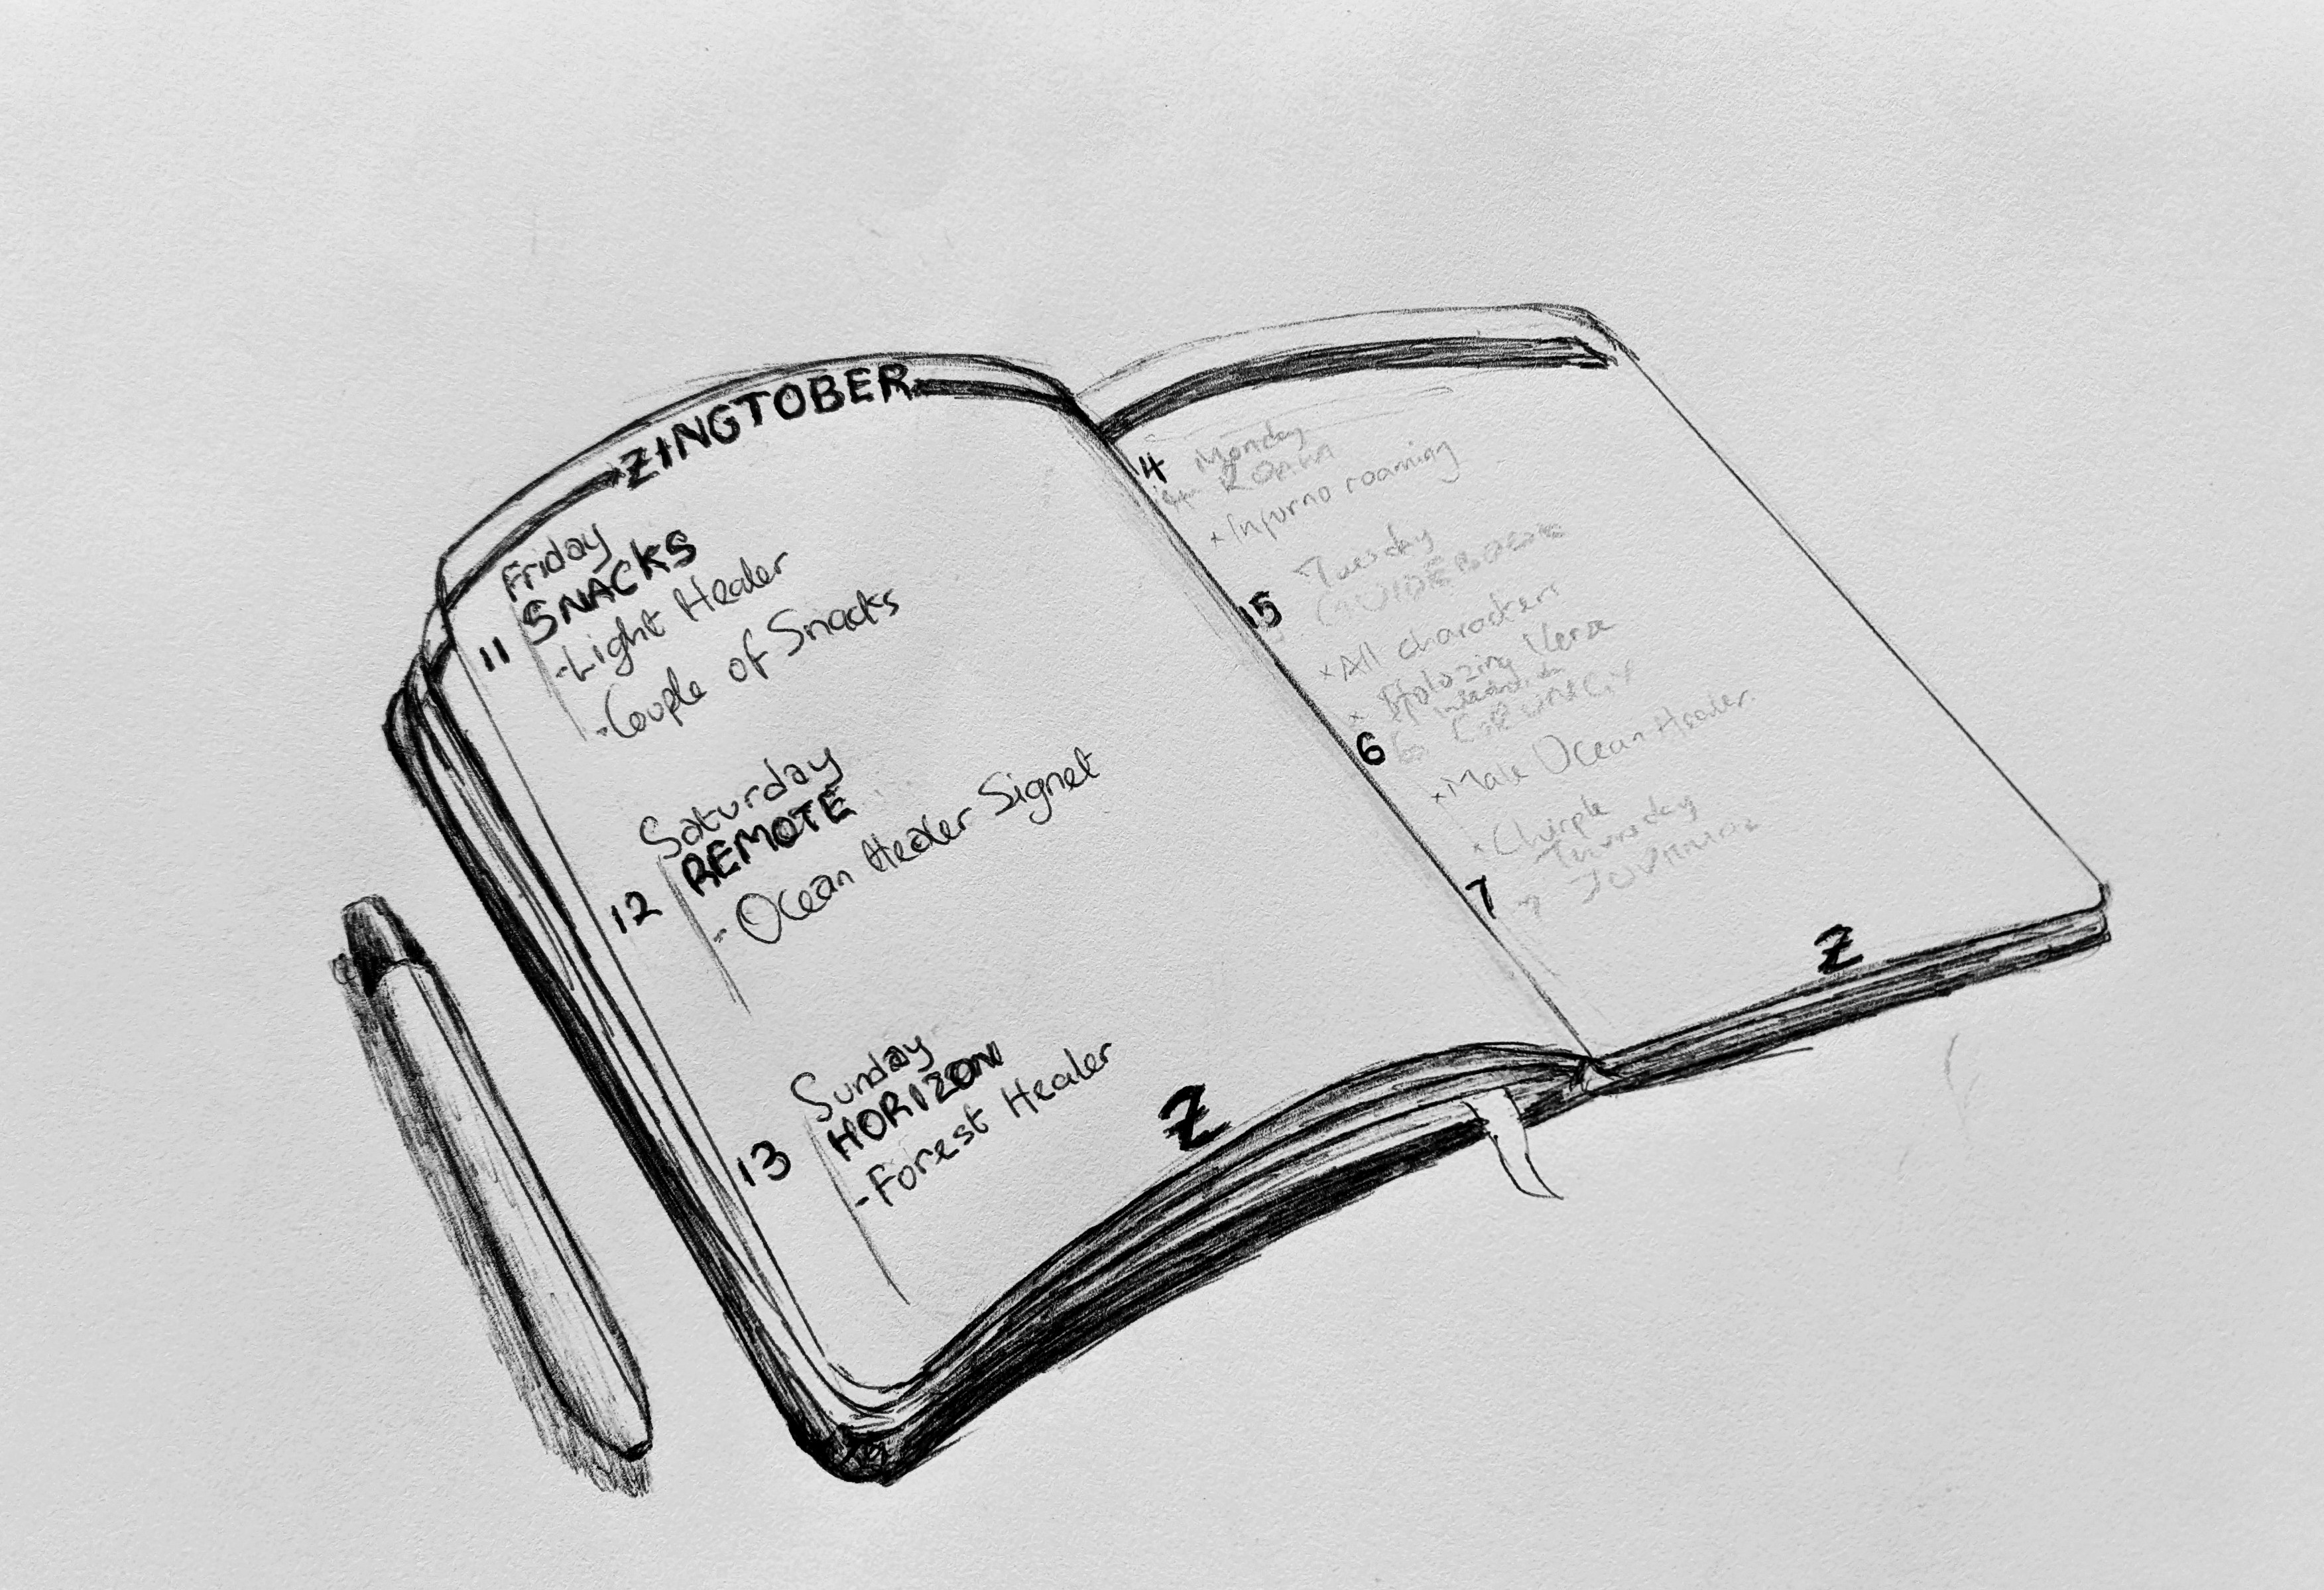 ZINGTOBER
Friday
11 SNACKS
-Light Healer
-Couple of Snacks
Saturday
12 REMOTE
-Ocean Healer Signet
Sunday
13 HORIZON
-Forest Healer
Z
4 Monday
ROAM
x Inferno roaming
15 Tuesday
GUIDEBOOK
x All characters
x Holozing Verse
6
x Male Ocean Healer
x Chirple
Thursday
7 JOURNAL
Z